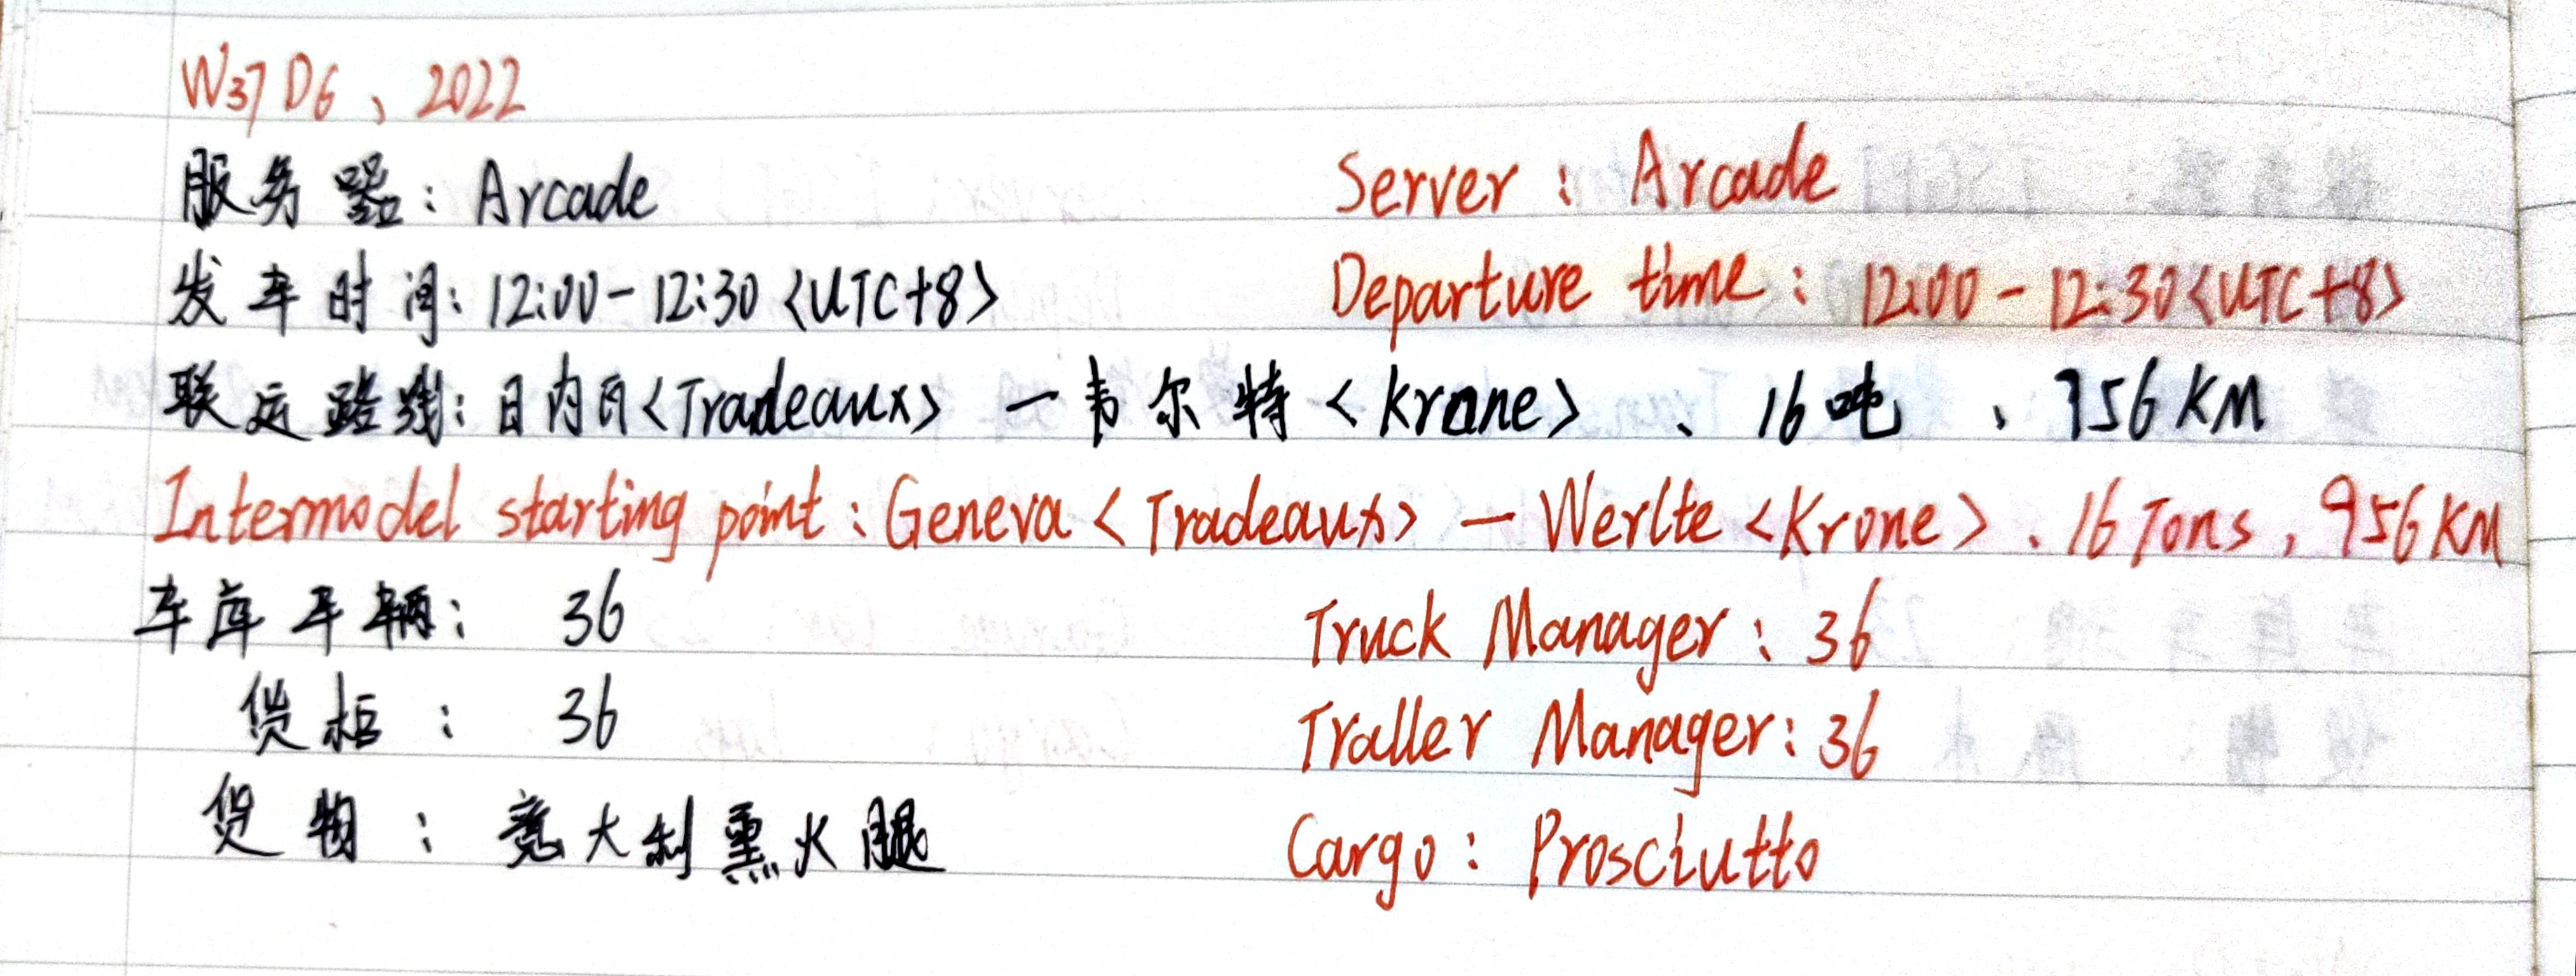 W37D6、2022
服务器：Arcade Server：Arcade
发车时间：12:00-12:30<UTC+8> Departure time：12:00-12:30<UTC+8>
联运路线：日内瓦<Tradeaux> —韦尔特<Krone> 、16吨 、956KM
Intermodel starting point：Geneva<Tradeaux> —Werlte<Krone>、16Tons，956KM
车库车辆： 36 Truck Manager：36
货柜： 36 Traller Manager：36
货物：意大利熏火腿 Cargo：Prosciutto